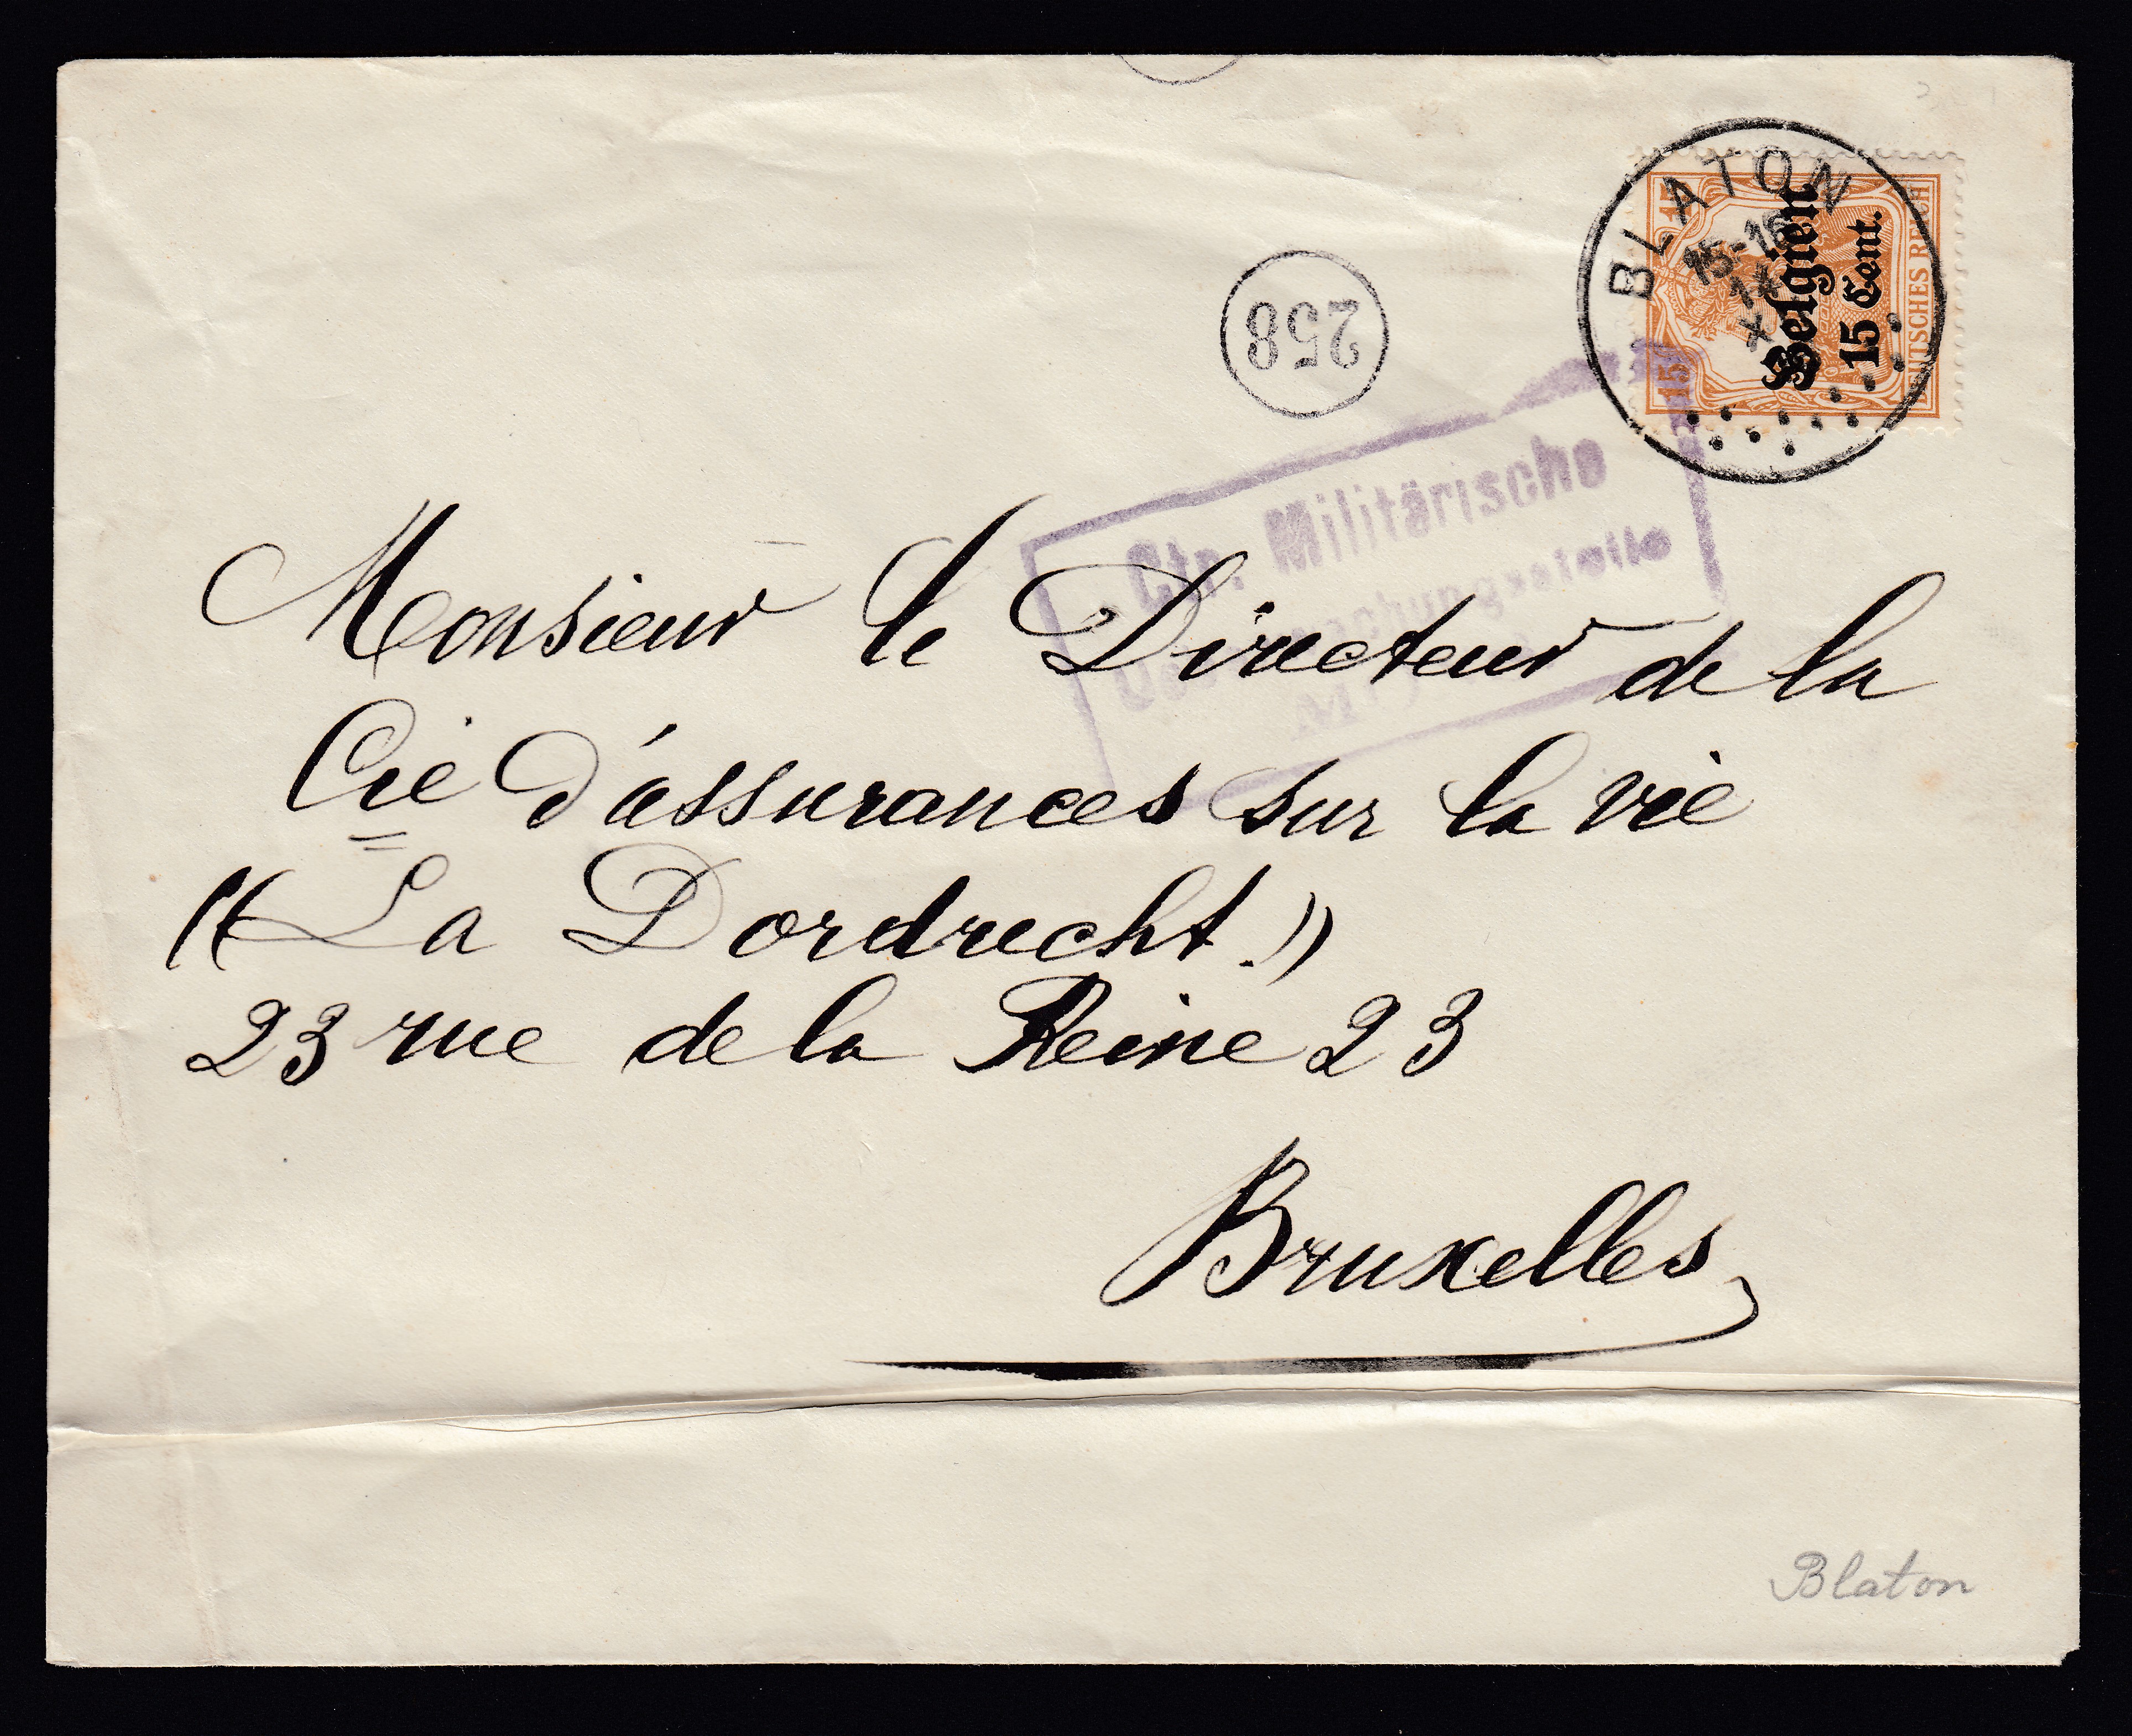 BLATON
15-16
14
X
Belgien
15 Cent.
DEUTSCHES REICH
15
258
Ctr. Militärische
Monsieur le Directeur de la
Cie d'assurances sur la vie
"La Dordrecht."
23 rue de la Reine 23
Bruxelles
Blaton